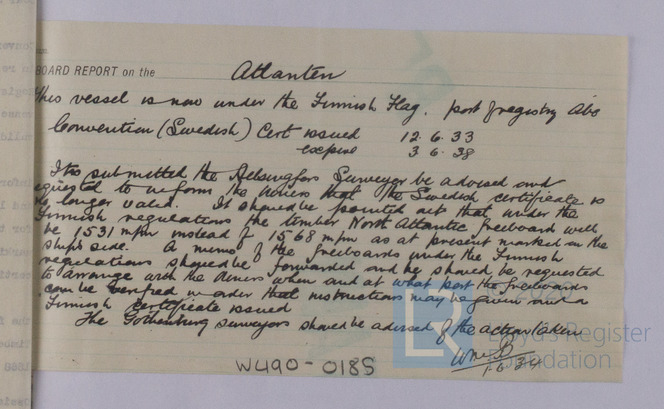 BOARD REPORT on the Atlanten
This vessel is now under the Finnish Flag. port of registry Åbo
Convention (Swedish) Cert issued 12.6.33
expire 3.6.38
It is submitted the Helsingfors Surveyor be advised and
requested to inform the Owners that the Swedish certificate is
no longer valid. It should be pointed out that under the
Finnish regulations the timber North Atlantic freeboard will
be 1531 m/m instead of 1568 m/m as at present marked on the
ship's side. A memo of the freeboards under the Finnish
regulations should be forwarded and he should be requested
to arrange with the Owners when and at what port the freeboards
can be verified in order that instructions may be given and a
Finnish certificate issued
The Gothenburg surveyors should be advised of the action taken
1.6.34
W490-0185
LR
Lloyd's Register
Foundation